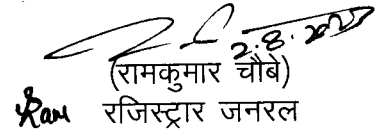 2.8.2023
(रामकुमार चौबे)
रजिस्ट्रार जनरल